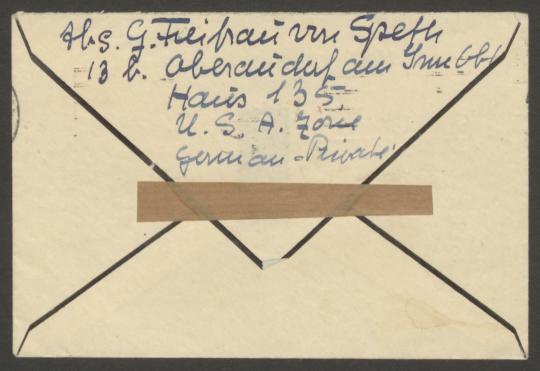 Abs. G. Freifrau von Speth
13 b. Oberaudorf am Inn Obb
Haus 135
U. S. A. Zone
German - Private